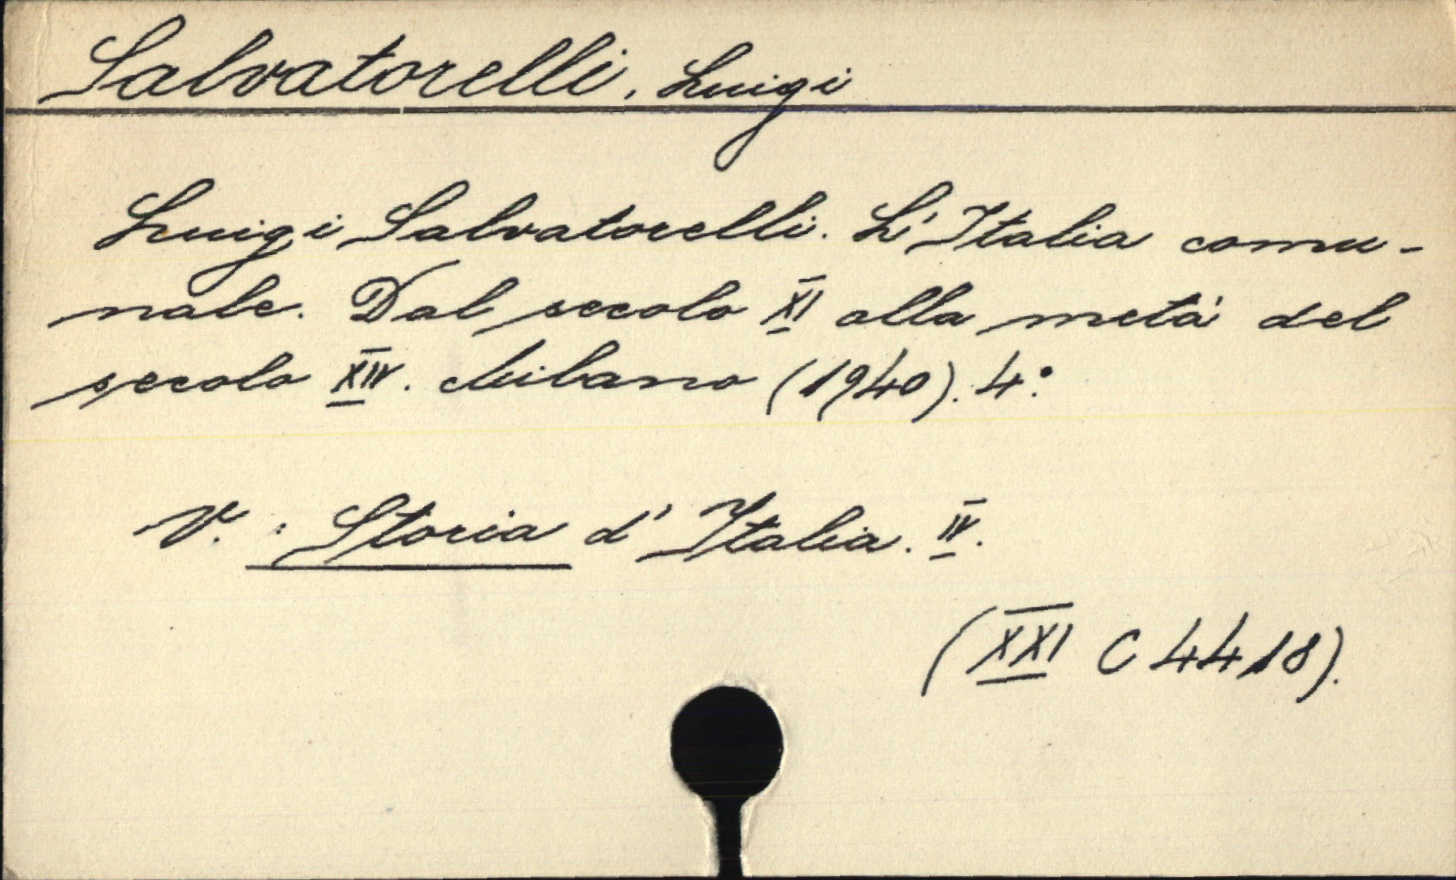 Salvatorelli, Luigi
Luigi Salvatorelli. L'Italia comu-
nale. Dal secolo XI alla metà del
secolo XIV. Milano (1940). 4°.
V. : Storia d'Italia. IV.
(XXI C 4418).